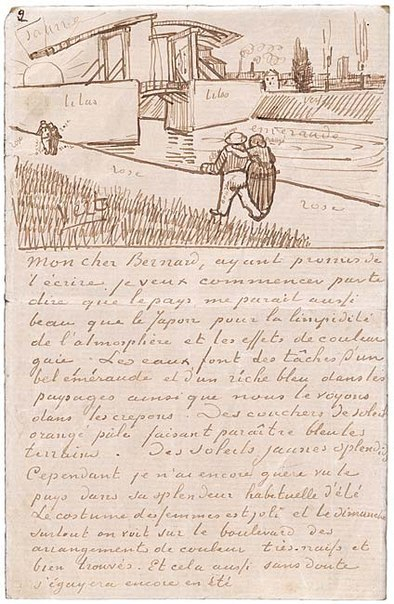 2
jaune
lilas
lilas
vert
emeraude
rose
rose
rose
vert
Mon cher Bernard, ayant promis de
t'écrire je veux commencer par te
dire que le pays me parait aussi
beau que le Japon pour la limpidité
de l'atmosphère et les effets de couleur
gaie. Les eaux font des tâches d'un
bel éméraude et d'un riche bleu dans les
paysages ainsi que nous le voyons
dans les crepons. Des couchers de soleil
orangé pâle faisant paraître bleu les
terrains. Des soleils jaunes splendides
Cependant je n'ai encore guère vu le
pays dans sa splendeur habituelle d'été
Le costume des femmes est joli et le dimanche
surtout on voit sur le boulevard des
arrangements de couleur très naïfs et
bien trouvés. Et cela aussi sans doute
s'égayera encore en été